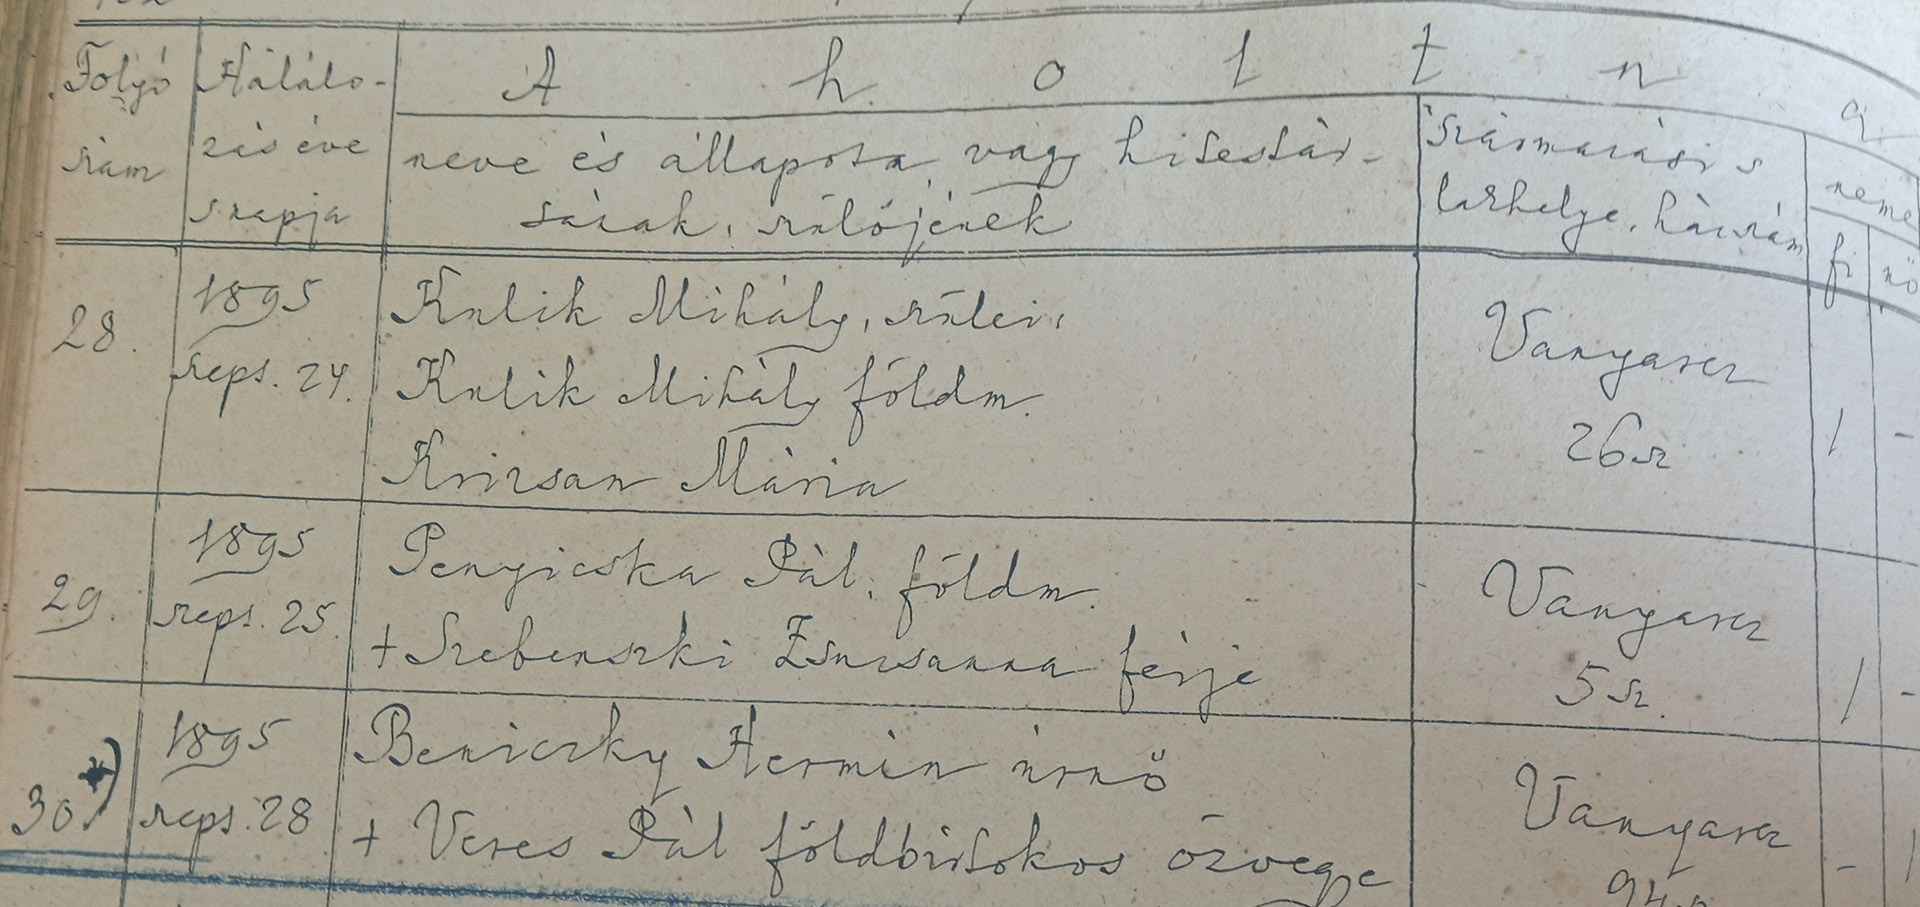 Folyó szám
Halálo-
zás éve
s napja
A h o l t n
neve és állapota, vagy hitestár-
sának, szülőjének
Származási s
lakhelye, házszám
neme
fi
nő
28.
1895
szept. 24.
Kulik Mihály, szülei:
Kulik Mihály földm.
Krizsan Mária
Vanyarcz
26 sz
1 -
29.
1895
szept. 25.
Penyicska Pál, földm.
+ Szebenszki Zsuzsanna férje
Vanyarcz
5 sz.
1 -
30 *)
1895
szept. 28
Beniczky Hermin úrnő
+ Veres Pál földbirtokos özvegye
Vanyarcz
- 1